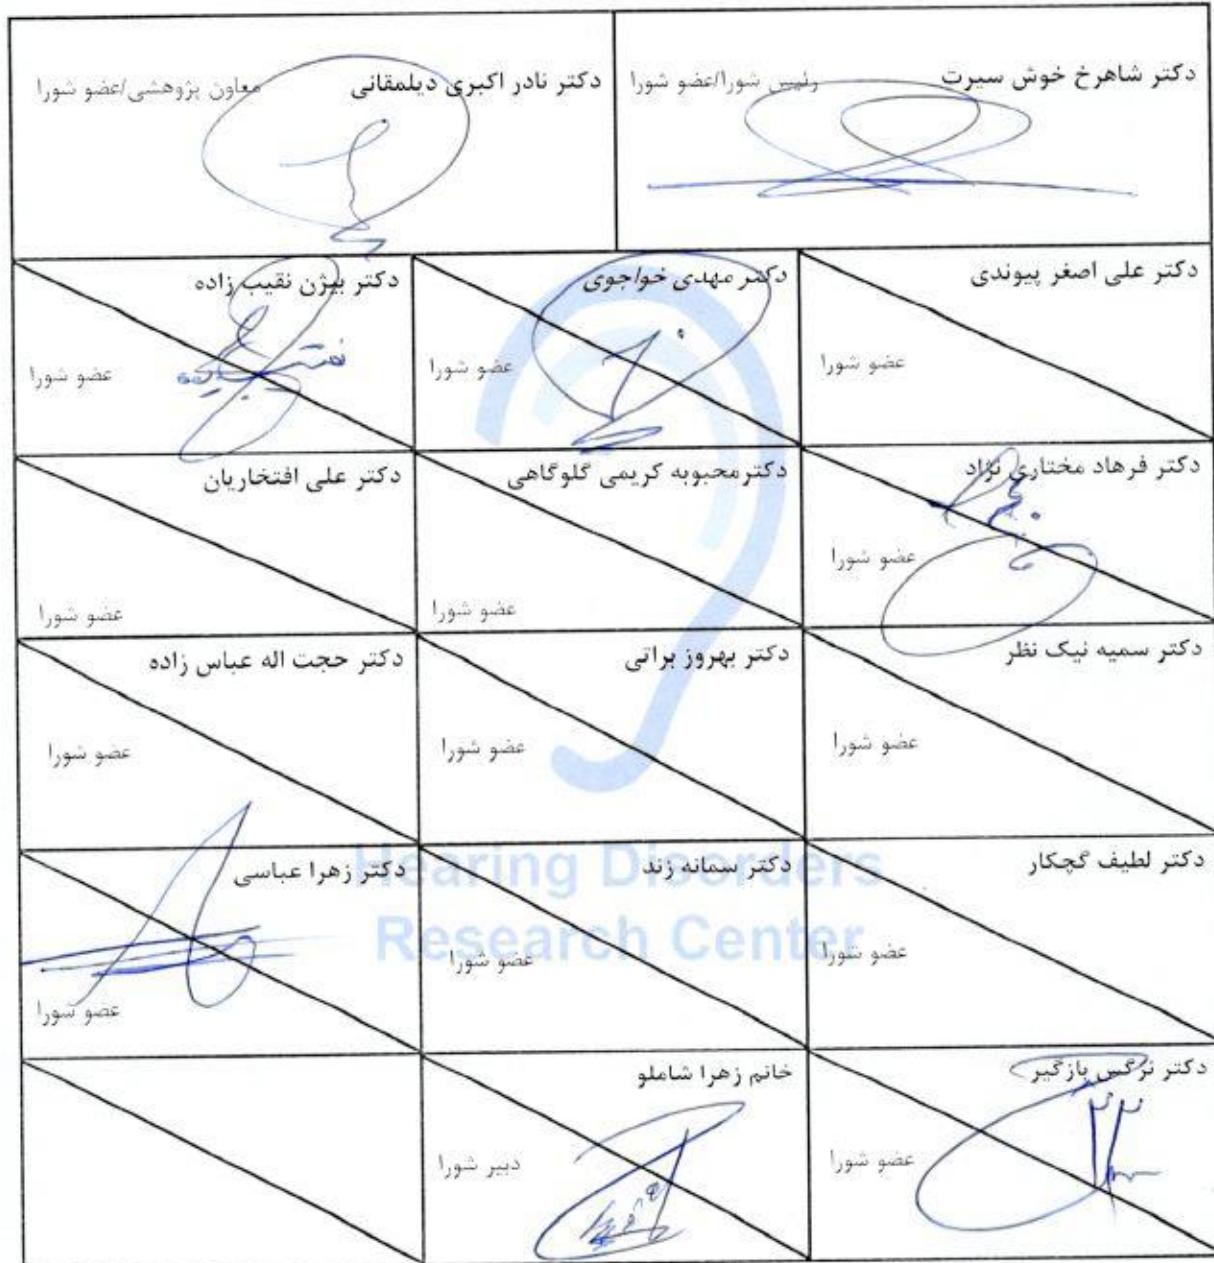 دکتر شاهرخ خوش سیرت
رئیس شورا/عضو شورا
دکتر نادر اکبری دیلمقانی
معاون پژوهشی/عضو شورا
دکتر علی اصغر پیوندی
عضو شورا
دکتر مهدی خواجوی
عضو شورا
دکتر بیژن نقیب زاده
عضو شورا
دکتر فرهاد مختاری نژاد
عضو شورا
دکترمحبوبه کریمی گلوگاهی
عضو شورا
دکتر علی افتخاریان
عضو شورا
دکتر سمیه نیک نظر
عضو شورا
دکتر بهروز براتی
عضو شورا
دکتر حجت اله عباس زاده
عضو شورا
دکتر لطیف گچکار
عضو شورا
دکتر سمانه زند
عضو شورا
دکتر زهرا عباسی
عضو شورا
Hearing Disorders
Research Center
دکتر نرگس بازگیر
عضو شورا
خانم زهرا شاملو
دبیر شورا